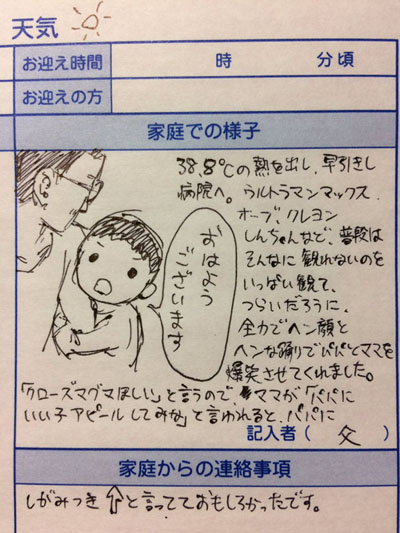 天気
お迎え時間 時 分頃
お迎えの方
家庭での様子
38.8℃の熱を出し、早引きし
病院へ。ウルトラマンマックス
オーブ、クレヨン
しんちゃんなど、普段は
そんなに観れないのを
いっぱい観て、
つらいだろうに、
全力でヘン顔と
ヘンな踊りでパパとママを
爆笑させてくれました。
おはよう
ございます
「クローズマグマほしい」と言うので、ママが「パパに
いい子アピールしてみな」と言われると、パパに
記入者( 父 )
家庭からの連絡事項
しがみつき↑と言ってておもしろかったです。